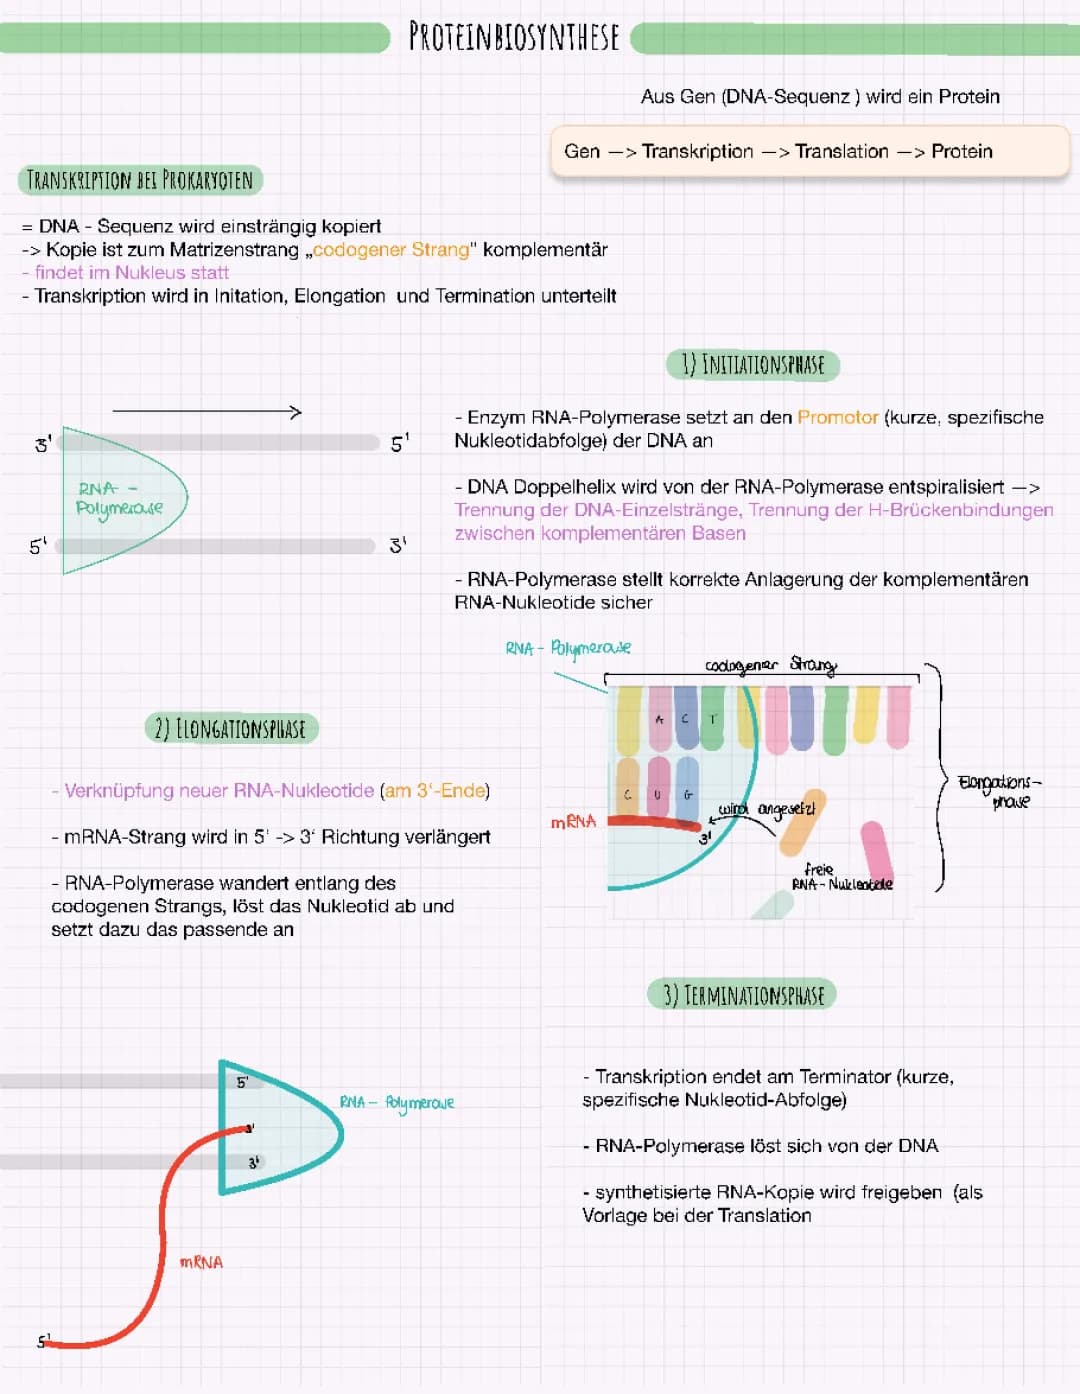 PROTEINBIOSYNTHESE
Aus Gen (DNA-Sequenz ) wird ein Protein
Gen —> Transkription —> Translation —> Protein
TRANSKRIPTION BEI PROKARYOTEN
= DNA - Sequenz wird einsträngig kopiert
-> Kopie ist zum Matrizenstrang „codogener Strang" komplementär
- findet im Nukleus statt
- Transkription wird in Initation, Elongation und Termination unterteilt
1) INITIATIONSPHASE
- Enzym RNA-Polymerase setzt an den Promotor (kurze, spezifische
Nukleotidabfolge) der DNA an
- DNA Doppelhelix wird von der RNA-Polymerase entspiralisiert —>
Trennung der DNA-Einzelstränge, Trennung der H-Brückenbindungen
zwischen komplementären Basen
- RNA-Polymerase stellt korrekte Anlagerung der komplementären
RNA-Nukleotide sicher
3' 5'
RNA -
Polymerase
5' 3'
RNA - Polymerase
codogener Strang
A C T
C U G
wird angesetzt
mRNA
3'
freie
RNA - Nukleotide
Elongations-
phase
2) ELONGATIONSPHASE
- Verknüpfung neuer RNA-Nukleotide (am 3‘-Ende)
- mRNA-Strang wird in 5‘ -> 3‘ Richtung verlängert
- RNA-Polymerase wandert entlang des
codogenen Strangs, löst das Nukleotid ab und
setzt dazu das passende an
3) TERMINATIONSPHASE
- Transkription endet am Terminator (kurze,
spezifische Nukleotid-Abfolge)
- RNA-Polymerase löst sich von der DNA
- synthetisierte RNA-Kopie wird freigeben (als
Vorlage bei der Translation
5'
RNA - Polymerase
3'
3'
mRNA
5'